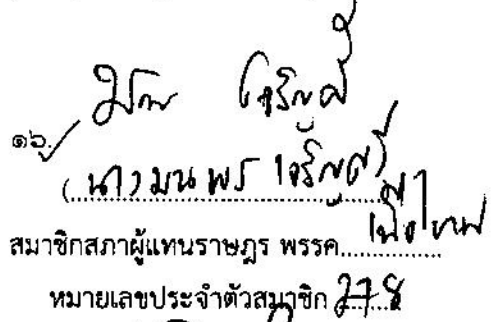 มนพร เจริญศรี
๑๖.
(นางมนพร เจริญศรี)
สมาชิกสภาผู้แทนราษฎร พรรค เพื่อไทย
หมายเลขประจำตัวสมาชิก 278